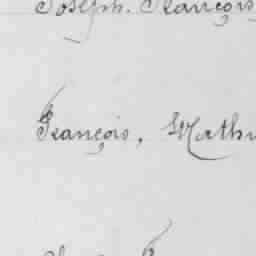 Joseph. François
François, Mathu